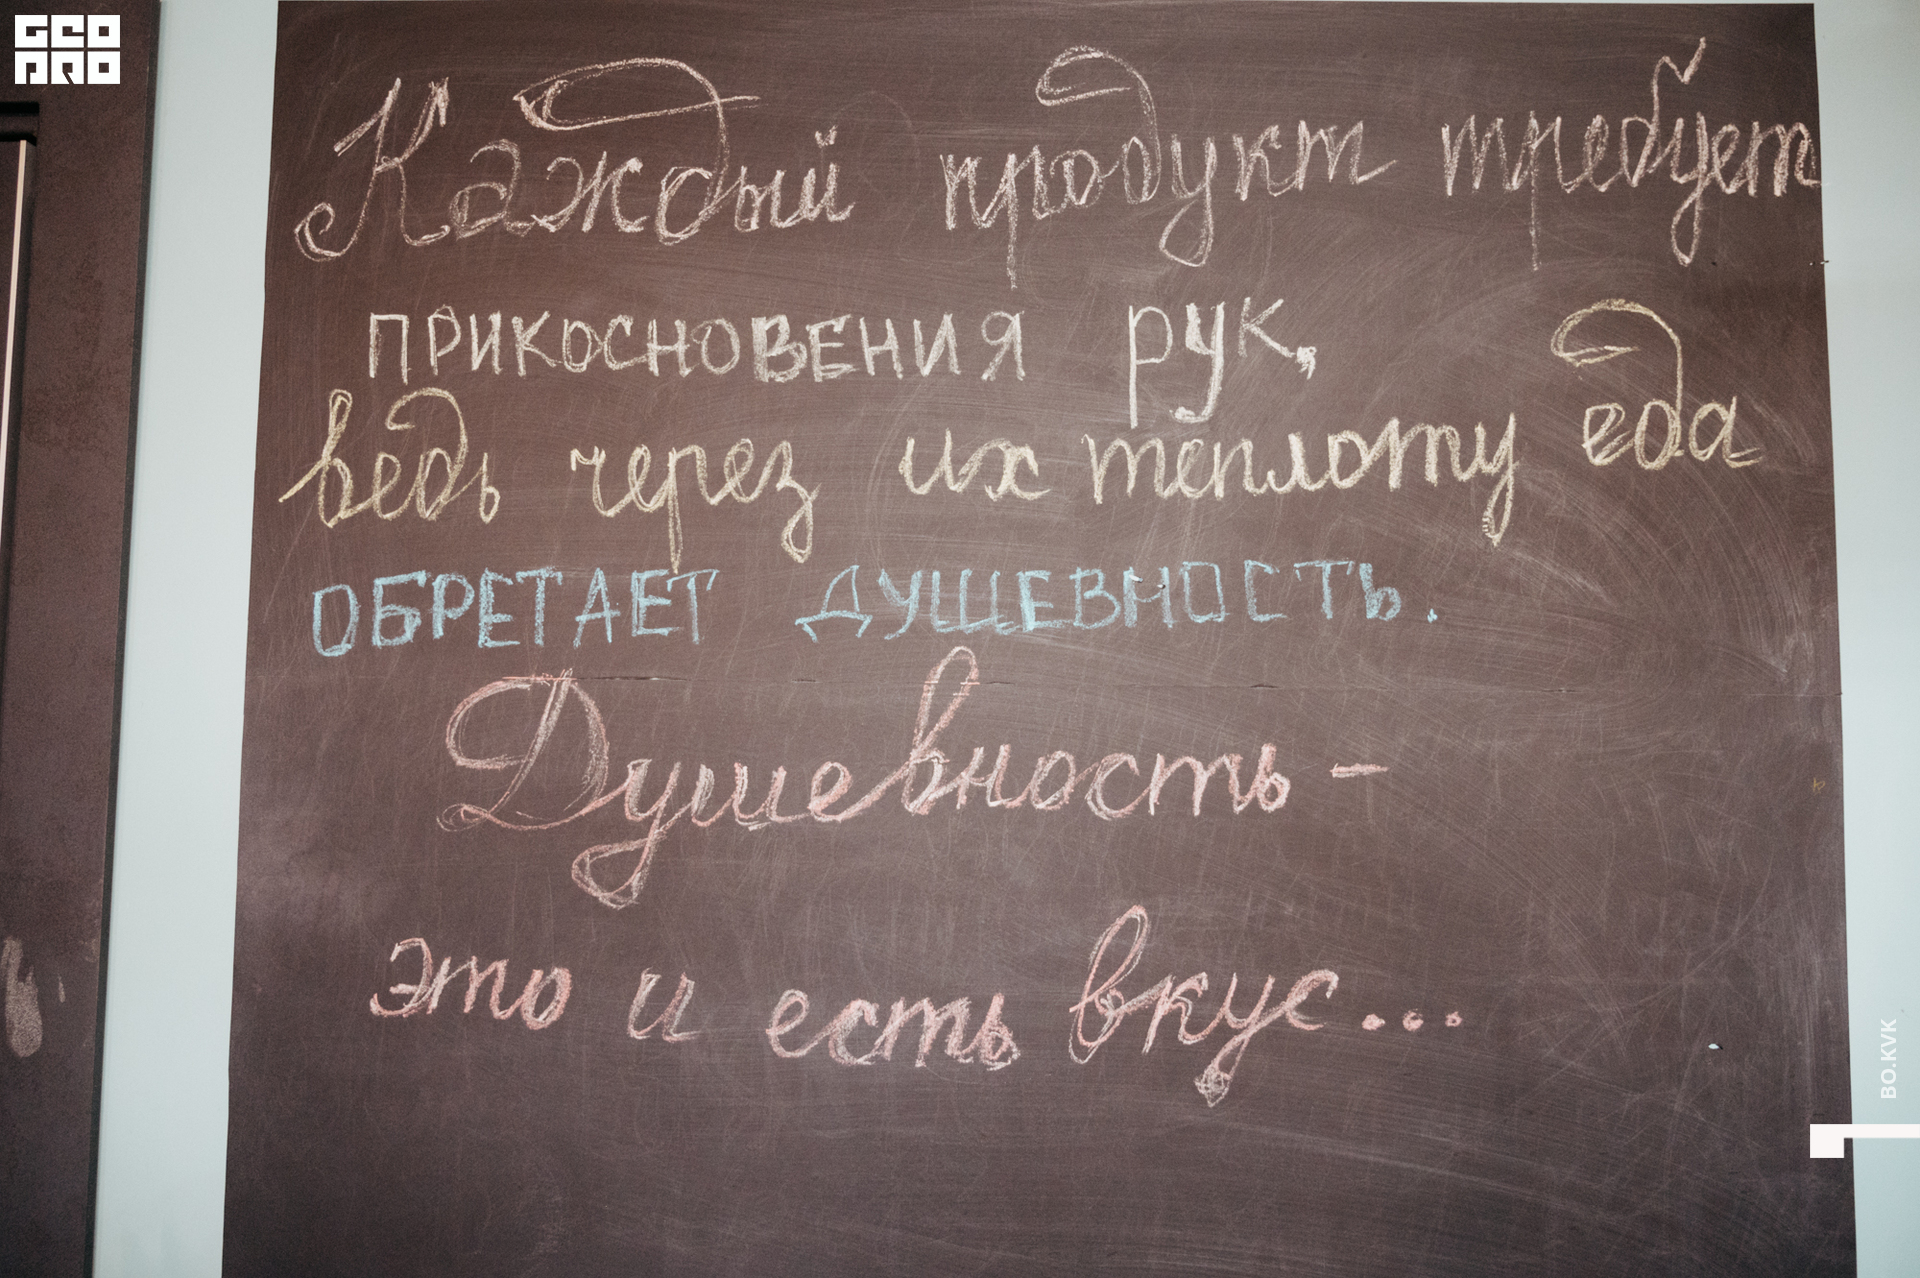 GEO
PRO
Каждый продукт требует
ПРИКОСНОВЕНИЯ РУК,
ведь через их теплоту еда
ОБРЕТАЕТ ДУШЕВНОСТЬ.
Душевность –
это и есть вкус...
BO.KVK